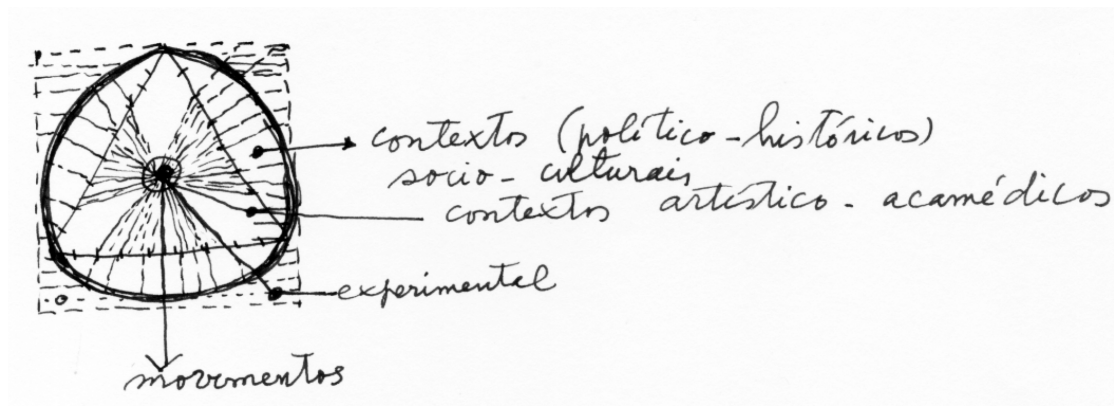 contextos (político-históricos)
socio-culturais
contextos artístico-acamédicos
experimental
movimentos